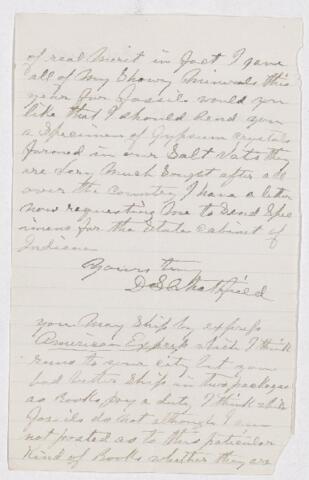 of real Merit in fact I gave
all of My Showy Minerals this
year for fossils would you
like that I should send you
a Specimen of Gypsum crystals
formed in our Salt Vats they
are Very Much Sought after all
over the country I have a letter
now requesting Me to Send Spe
cimens for the State Cabinet of
Indiana
Yours truly
D S Hatfield
you May Ship by express
American Express which I think
runs to your city but you
had better Ship in two packages
as Books pay a duty I think while
fossils do not although I am
not posted as to this paticular
Kind of Books whether they are